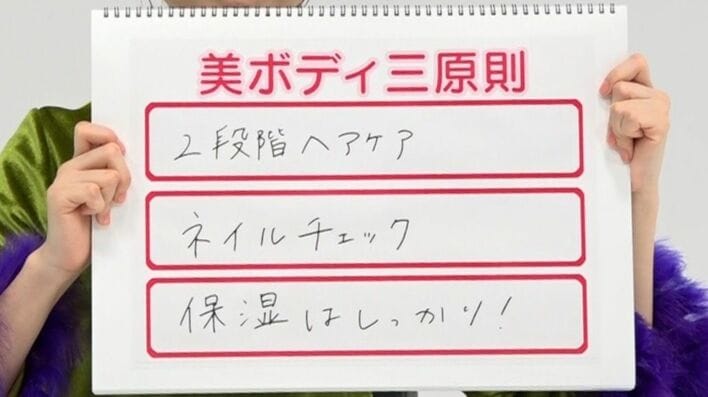 美ボディ三原則
2段階ヘアケア
ネイルチェック
保湿はしっかり!